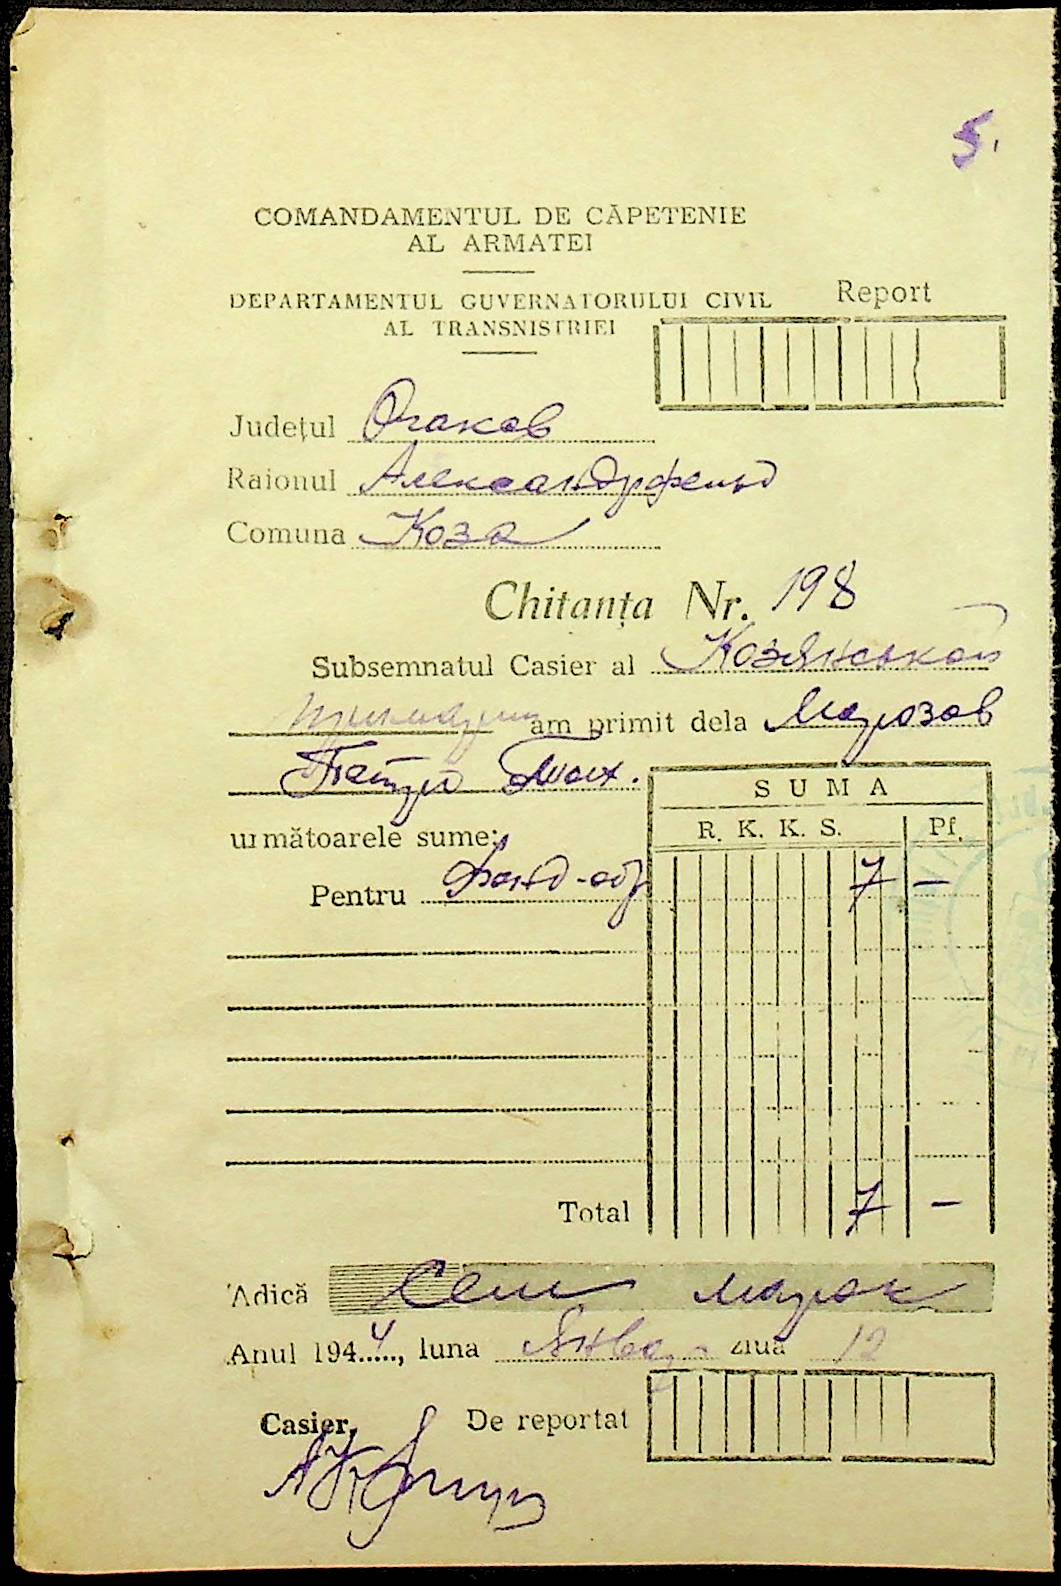 5.
COMANDAMENTUL DE CĂPETENIE
AL ARMATEI
DEPARTAMENTUL GUVERNATORULUI CIVIL
AL TRANSNISTRIEI
Report
Județul Очаков
Raionul Александрфельд
Comuna Коза
Chitanța Nr. 198
Subsemnatul Casier al Козянської
am primit dela Марозов
Петро
următoarele sume:
SUMA
R. K. K. S. Pf.
Pentru Фонд-обр 7 —
Total 7 —
Adică Сем марок
Anul 1944, luna Январ ziua 12
Casier, De reportat